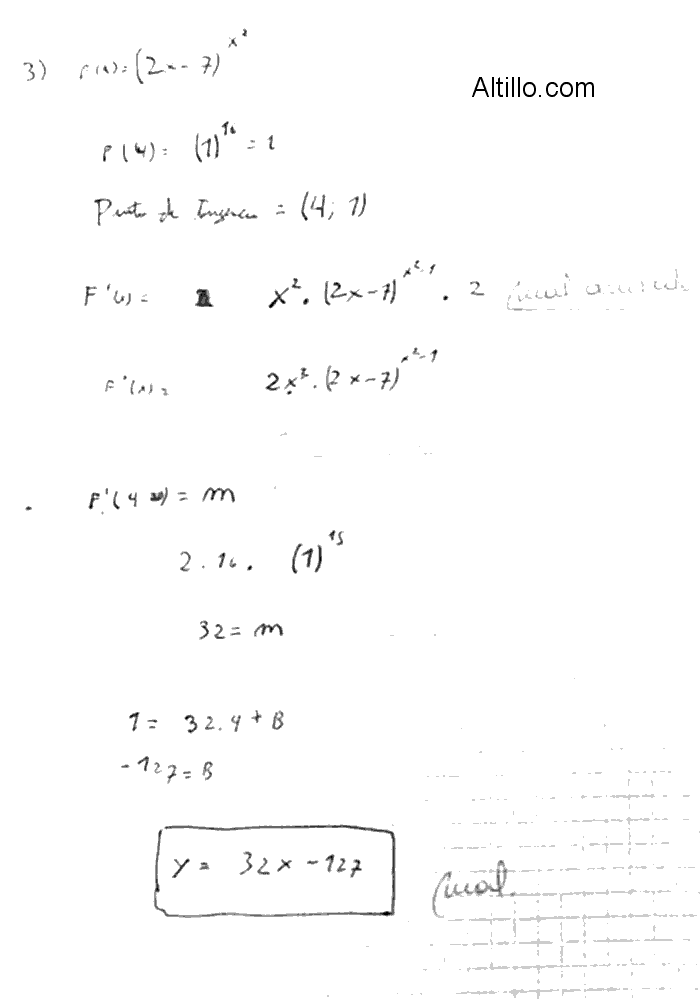 3) F(x)= (2x-7)^x²
Altillo.com
F(4)= (1)^16 = 1
Punto de = (4; 1)
F'(x)= x². (2x-7)^x²-1 . 2 (mal
F'(x)= 2x². (2x-7)^x²-1
F'(4) = m
2.16. (1)^15
32= m
1= 32.4+B
-127=B
y= 32x-127
(mal.